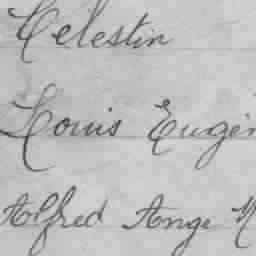 Celestin
Louis Eugèn
Alfred Ange M